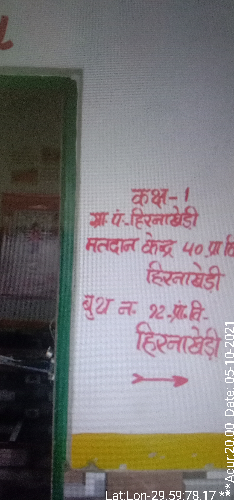 कक्ष-1
ग्रा.पं.-हिरनाखेड़ी
मतदान केन्द्र 40 प्रा वि
हिरनाखेड़ी
बुथ न- 92-प्रा.वि.-
हिरनाखेड़ी
Lat:Lon-29.59:78.17 **
*Acur:20.00 Date: 05-10-2021